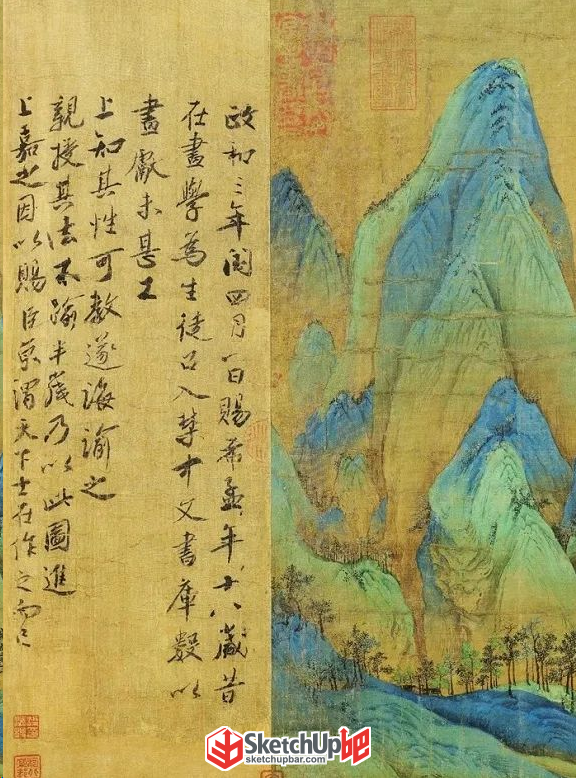 政和三年閏四月一日賜希孟年十八歲昔
在畫學為生徒召入禁中文書庫數以
畫獻未甚工
上知其性可教遂誨諭之
親授其法不踰半歲乃以此圖進
上嘉之因以賜臣京謂天下士在作之而已
SketchUp吧
sketchupbar.com